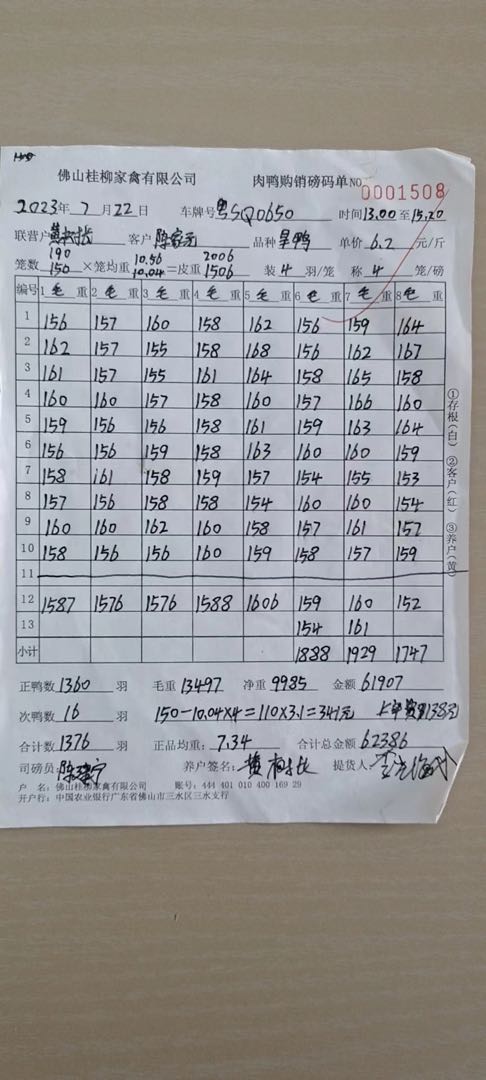 佛山桂柳家禽有限公司 肉鸭购销磅码单 NO 0001508
2023年 7月 22日 车牌号 粤SQ0650 时间 13.00 至 15.20
联营户 黄树长 客户 陈家元 品种 旱鸭 单价 6.2 元/斤
190 10.56 2006
笼数 150 ×笼均重 10.04 =皮重 1506 装 4 羽/笼 称 4 笼/磅
编号 1 毛 重 2 毛 重 3 毛 重 4 毛 重 5 毛 重 6 毛 重 7 毛 重 8 毛 重
1 156 157 160 158 162 156 159 164
2 162 157 155 158 168 156 162 167
3 161 157 155 161 164 158 165 158
4 160 160 157 158 160 157 166 160
5 159 156 156 158 161 159 163 164
6 156 156 159 158 163 160 160 159
7 158 161 158 159 157 154 155 153
8 157 156 158 158 154 160 160 154
9 160 160 162 160 158 157 161 157
10 158 156 156 160 159 158 157 159
11
12 1587 1576 1576 1588 1606 159 160 152
13 154 161
小计 1888 1929 1747
①存根(白) ②客户(红) ③养户(黄)
正鸭数 1360 羽 毛重 13497 净重 9985 金额 61907
次鸭数 16 羽 150-10.04×4=110×3.1=341元 138元
合计数 1376 羽 正品均重: 7.34 合计总金额 62386
司磅员: 养户签名: 黄树长 提货人
户 名: 佛山桂柳家禽有限公司 账号: 444 401 010 400 169 29
开户行: 中国农业银行广东省佛山市三水区三水支行